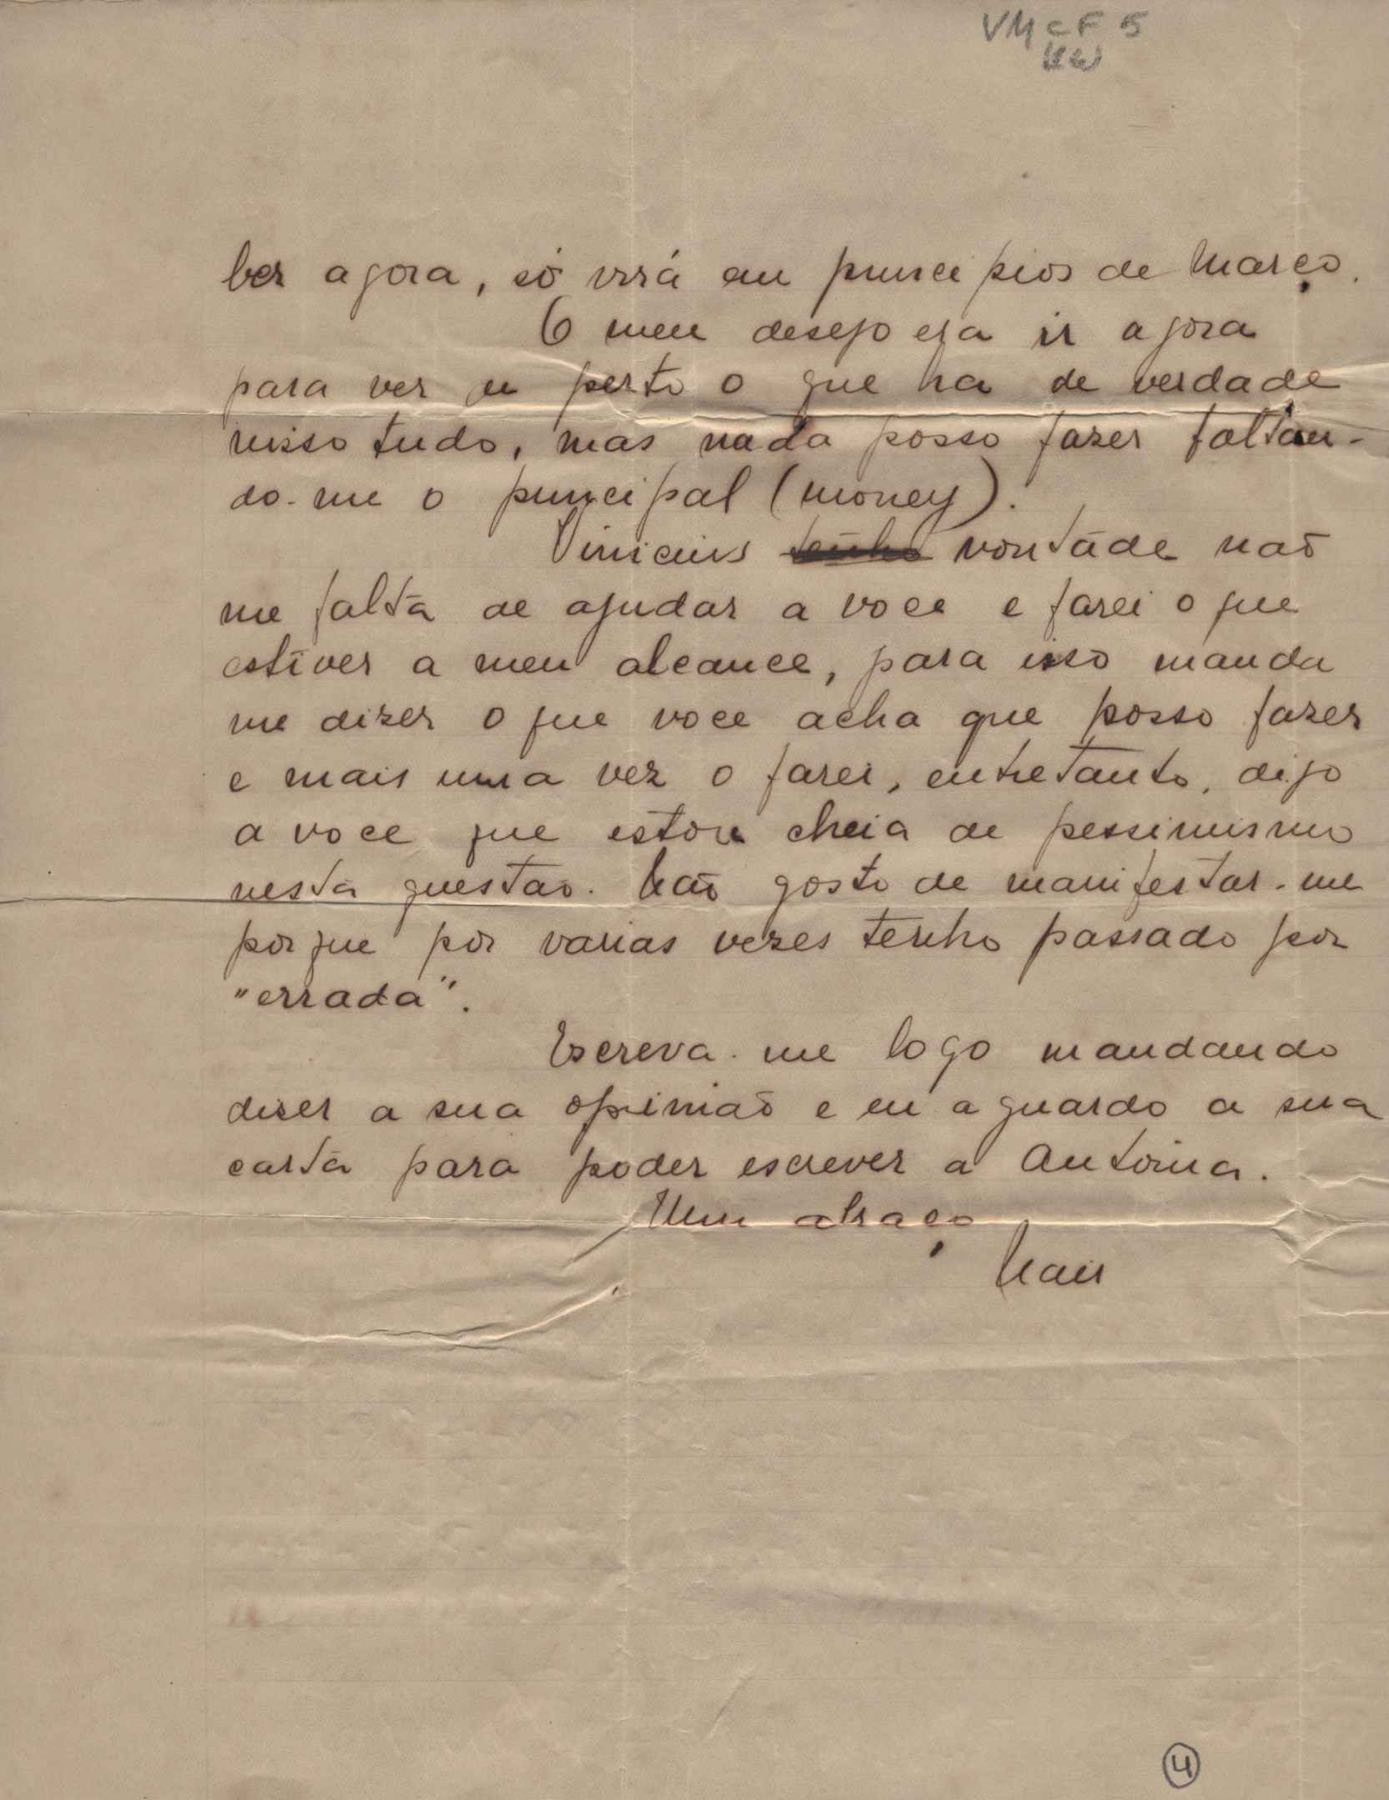 VM c F 5
ber agora, só virá em principios de Março.
O meu desejo era ir agora
para ver de perto o que ha de verdade
nisso tudo, mas nada posso fazer faltan-
do-me o principal (money).
Vinicius tenho vontade não
me falta de ajudar a voce e farei o que
estiver a meu alcance, para isso manda
me dizer o que voce acha que posso fazer
e mais uma vez o farei, entretanto, digo
a voce que estou cheia de pessimismo
nesta questão. Não gosto de manifestar-me
porque por varias vezes tenho passado por
"errada".
Escreva-me logo mandando
dizer a sua opinião e eu aguardo a sua
carta para poder escrever a Antonia.
Um abraço
Nair
4